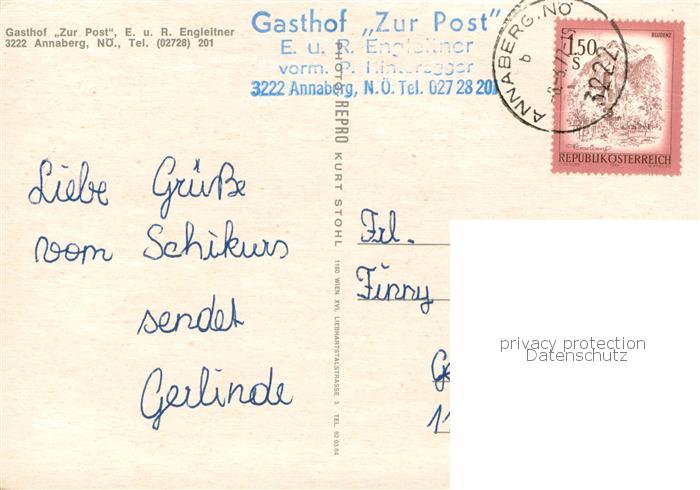 Gasthof „Zur Post", E. u. R. Engleitner
3222 Annaberg, NÖ., Tel. (02728) 201
Gasthof „Zur Post"
E. u. R. Engleitner
vorm. P. Hinteregger
3222 Annaberg, N.Ö. Tel. 027 28 201
ANNABERG, NÖ
b
3222
1.50
S
BLUDENZ
REPUBLIK ÖSTERREICH
PHOTO REPRO KURT STOHL 1160 WIEN XVI, LIEBHARTSTALSTRASSE 3 TEL. 92 03 64
Liebe Grüße
vom Schikurs
sendet
Gerlinde
Frl.
Finny
privacy protection
Datenschutz